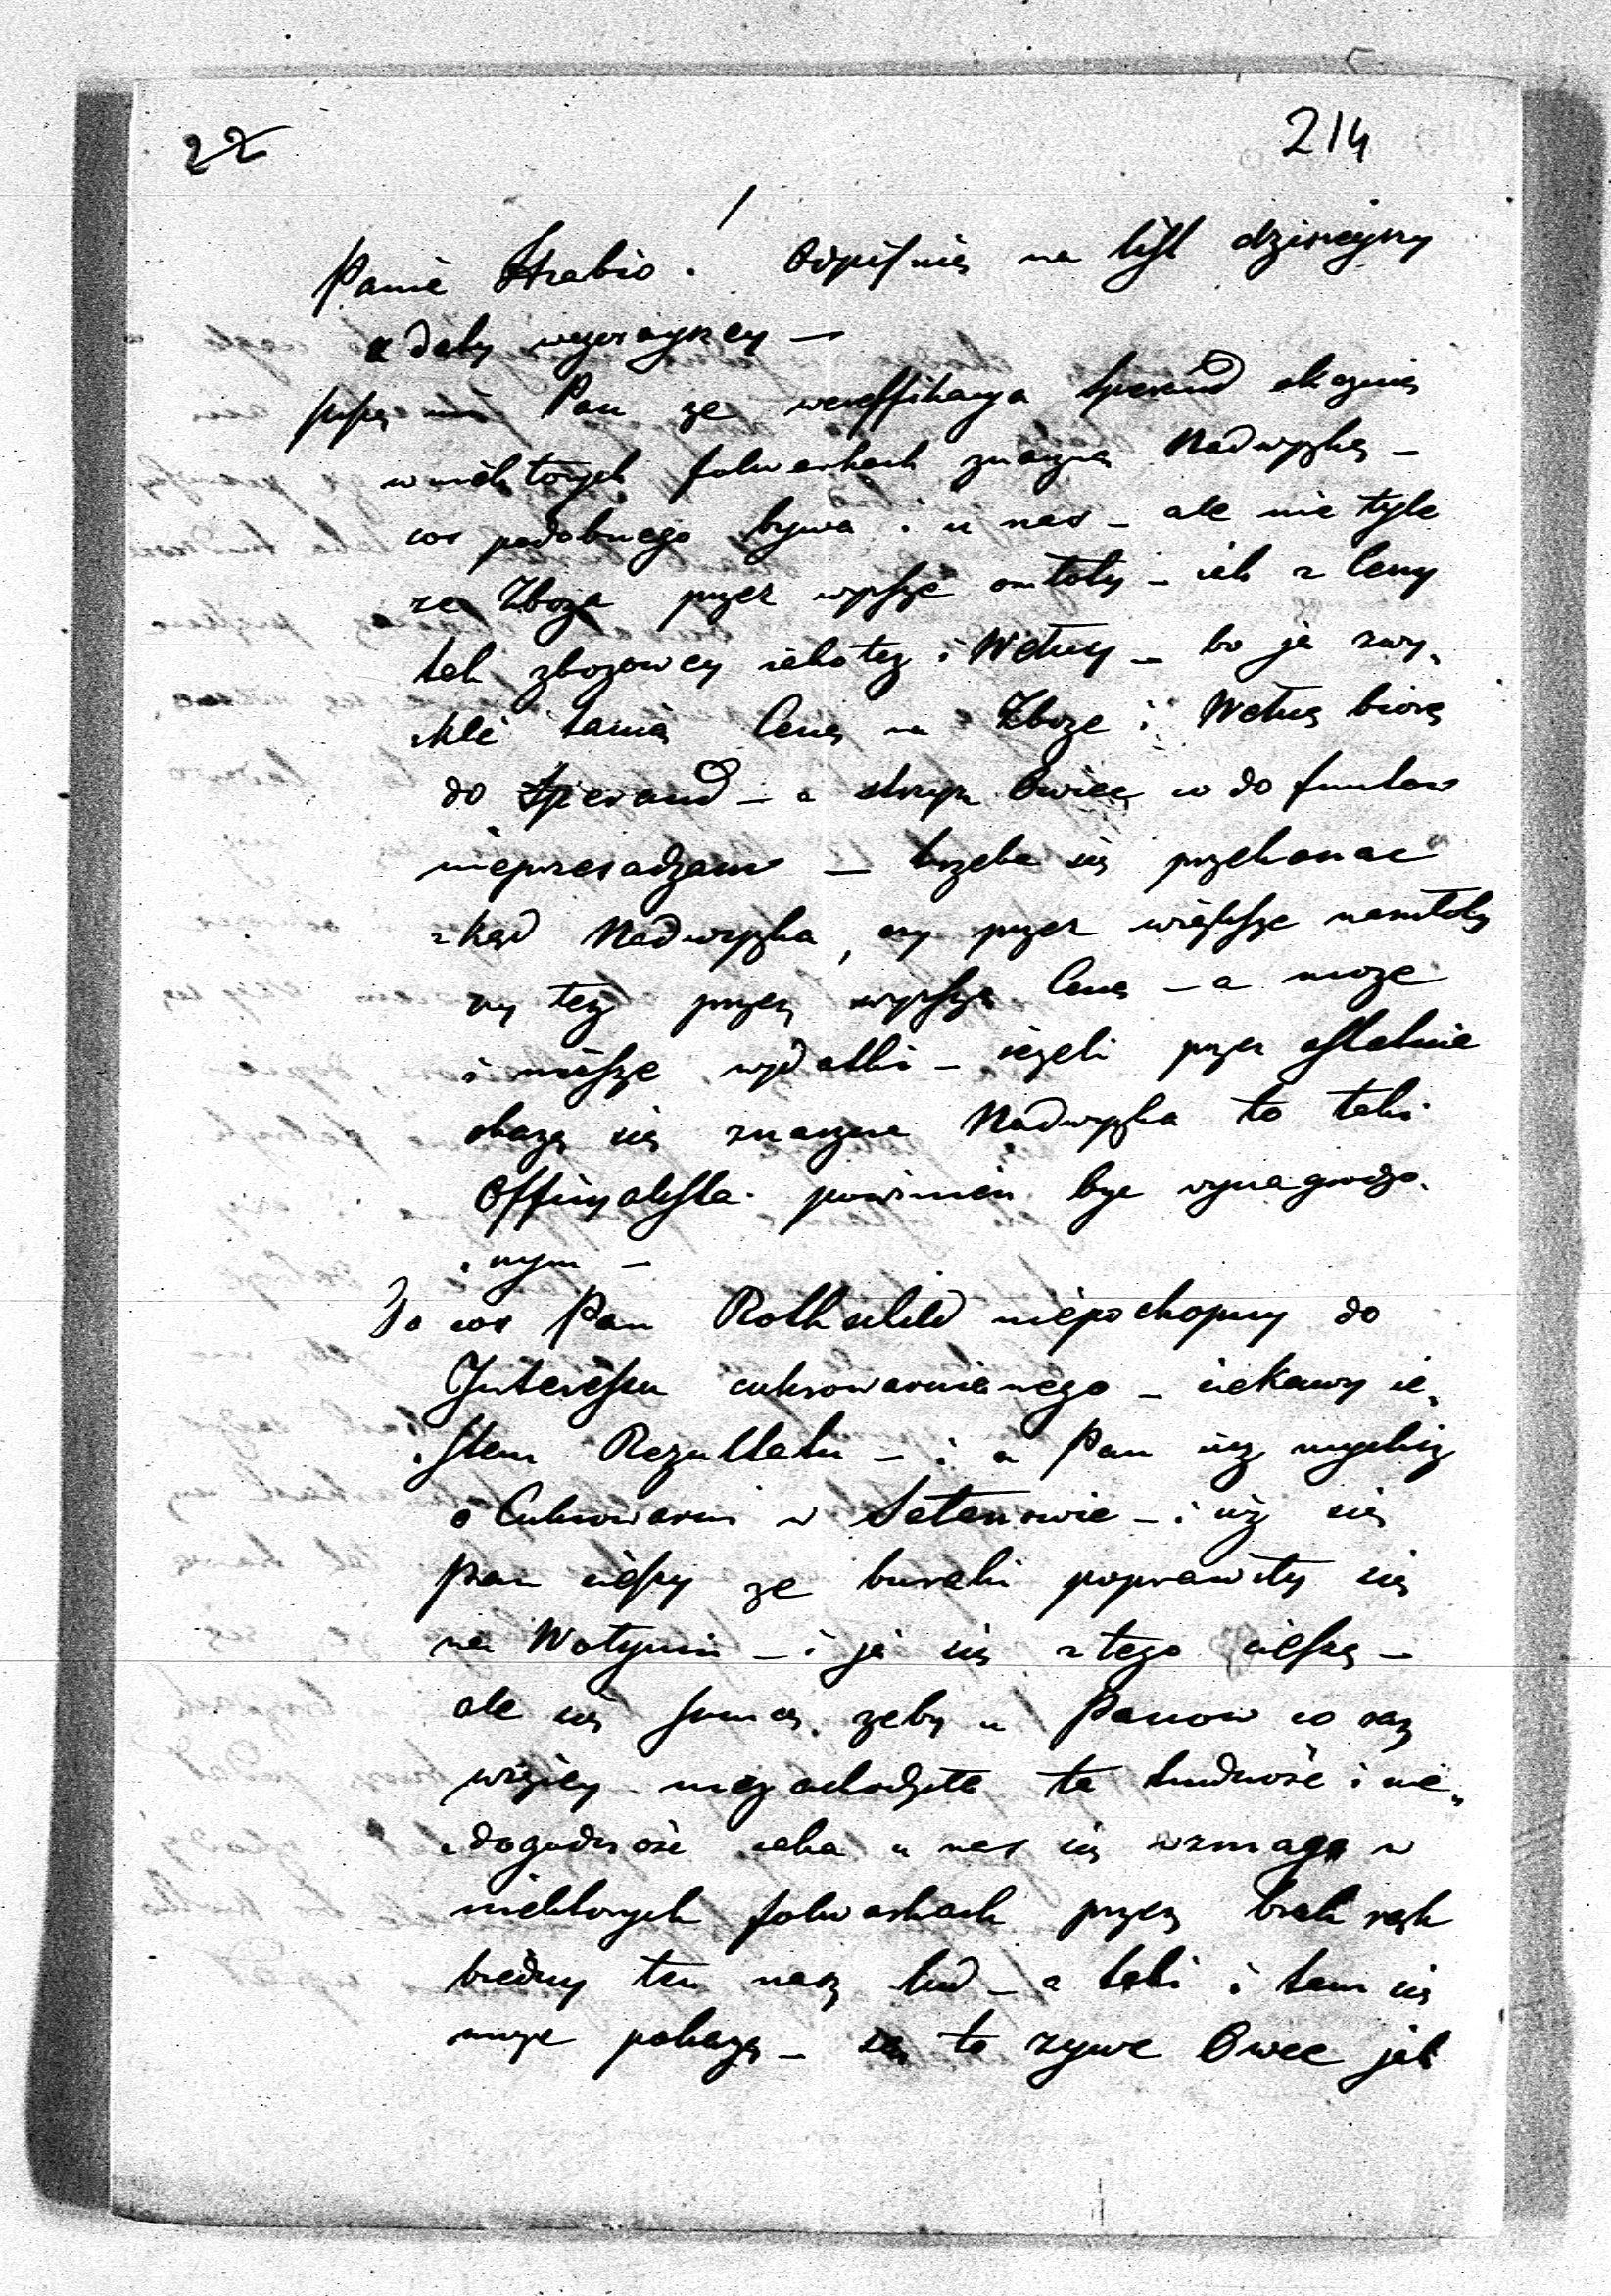 22
214
Panie Hrabio. Odpisuię na list dzisieyszy
z daty wczorayszey —
pisze mi Pan ze weryffikacya Sperand okazuie
w niektorych folwarkach znaczną Nadwyszkę —
cos podobnego bywa i u nas — ale nie tyle
ze Zboza przez wysze omłoty — iak z Ceny
tak zbozowey iako tez i Wełny — bo ja zwy-
-kle tanią Cenę na Zboze i Wełnę biorę
do Sperand — a strzyz Owiec co do funtow
nieprzesadzam — trzeba się przekonac
zkąd Nadwyszka, czy przez większe namłoty
czy tez przez wyszą Cenę — a moze
i niesze wydatki — iezeli przez ostatnie
okaze się znaczna Nadwyszka to taki
Offiyalista powinien byc wynagrodzo-
-nym —
Jo cos Pan Rothschild niepochopny do
Interessu cukrowarnianego — ciekawy ie-
-stem Rezultatu — i a Pan iuz myslisz
o Cukrowarni w Satanowie — i iuz się
Pan cieszy ze buraki poprawiły się
na Wołyniu — i ja się z tego cieszę —
ale się zeby u Panow co raz
więcey niezachodziła ta trudnosc i nie-
-dogodnosc iaka u nas się wzmaga w
niektorych folwarkach przez brak rąk
biedny ten nasz lud — a taki i tam się
moze pokaze — to zywe Owce jak